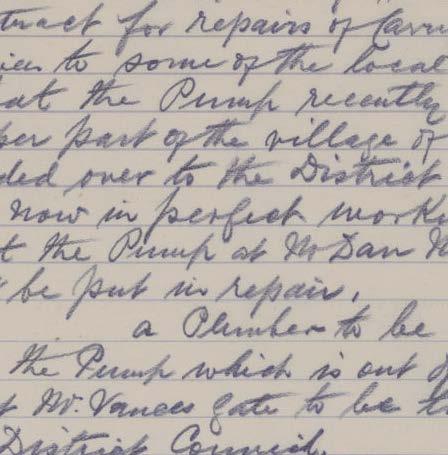 tract for repairs of
to some of the local
at the Pump recently
per part of the village of
ded over to the District
now in perfect work
t the Pump at Mr Dan
be put in repair.
a Plumber to be
the Pump which is out
Mr. Vances gate to be
District Council.